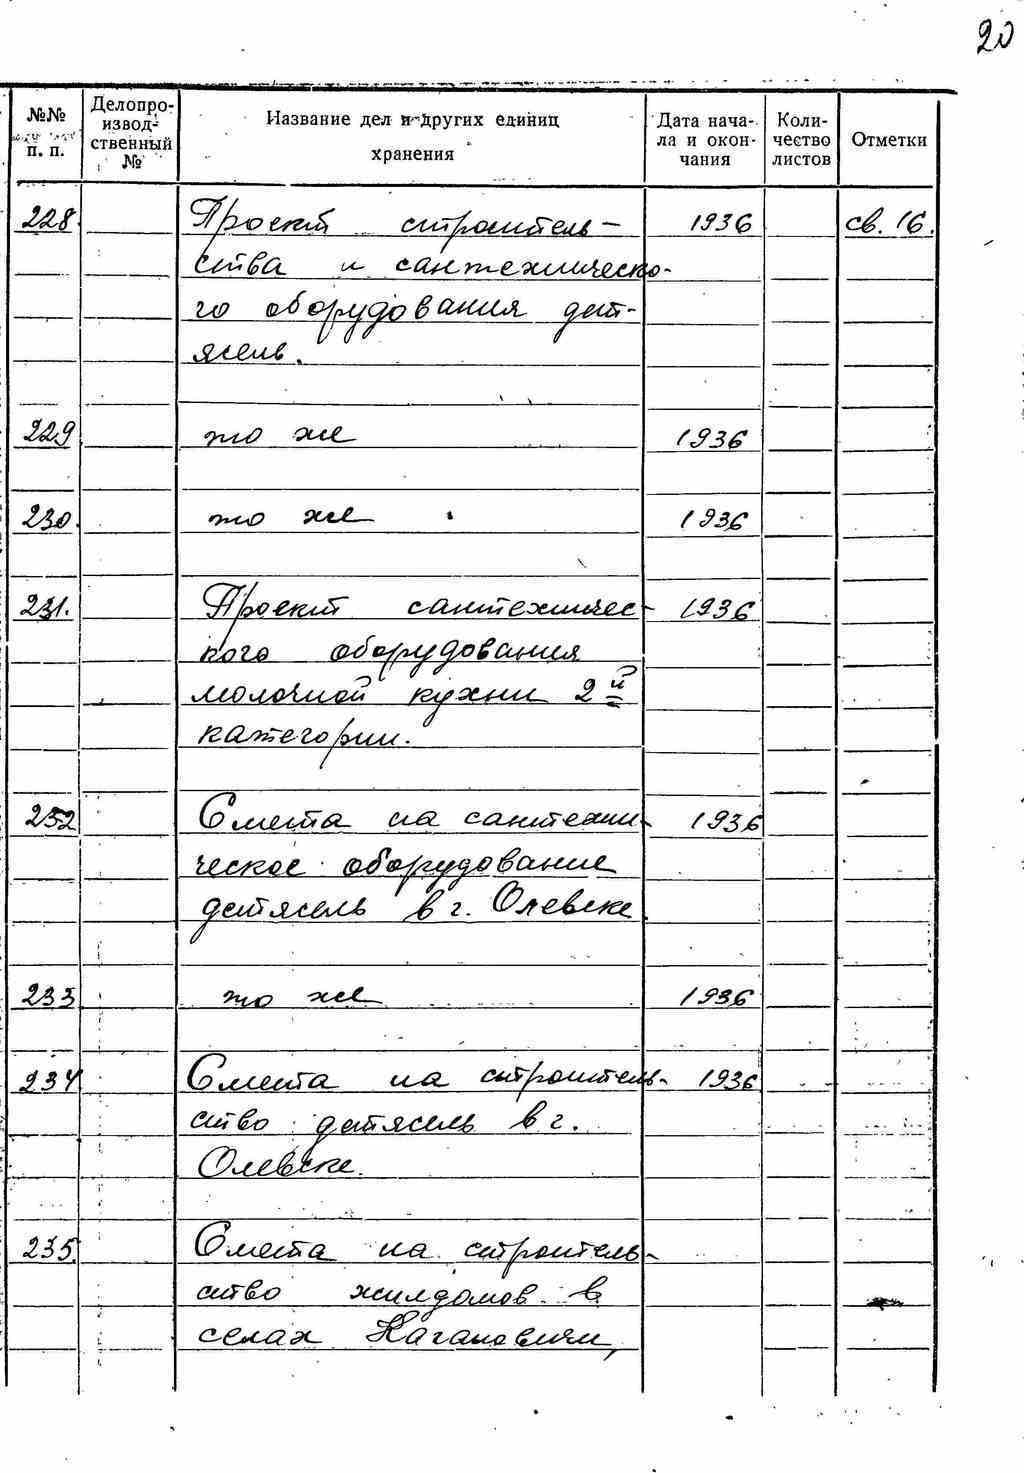 20
№№ п. п.
Делопроизводственный №
Название дел и других единиц хранения
Дата начала и окончания
Количество листов
Отметки
228. Проект строитель- 1936 св. 16.
ства и сантехническо-
го оборудования дет-
ясель.
229 то же 1936
230. то же 1936
231. Проект сантехничес- 1936
кого оборудования
молочной кухни 2й
категории.
232 Смета на сантехни- 1936
ческое оборудование
детясель в г. Олевске
233 то же 1936
234 Смета на строитель- 1936
ство детясель в г.
Олевске.
235. Смета на строитель-
ство жилдомов в
селах Кагановичи,